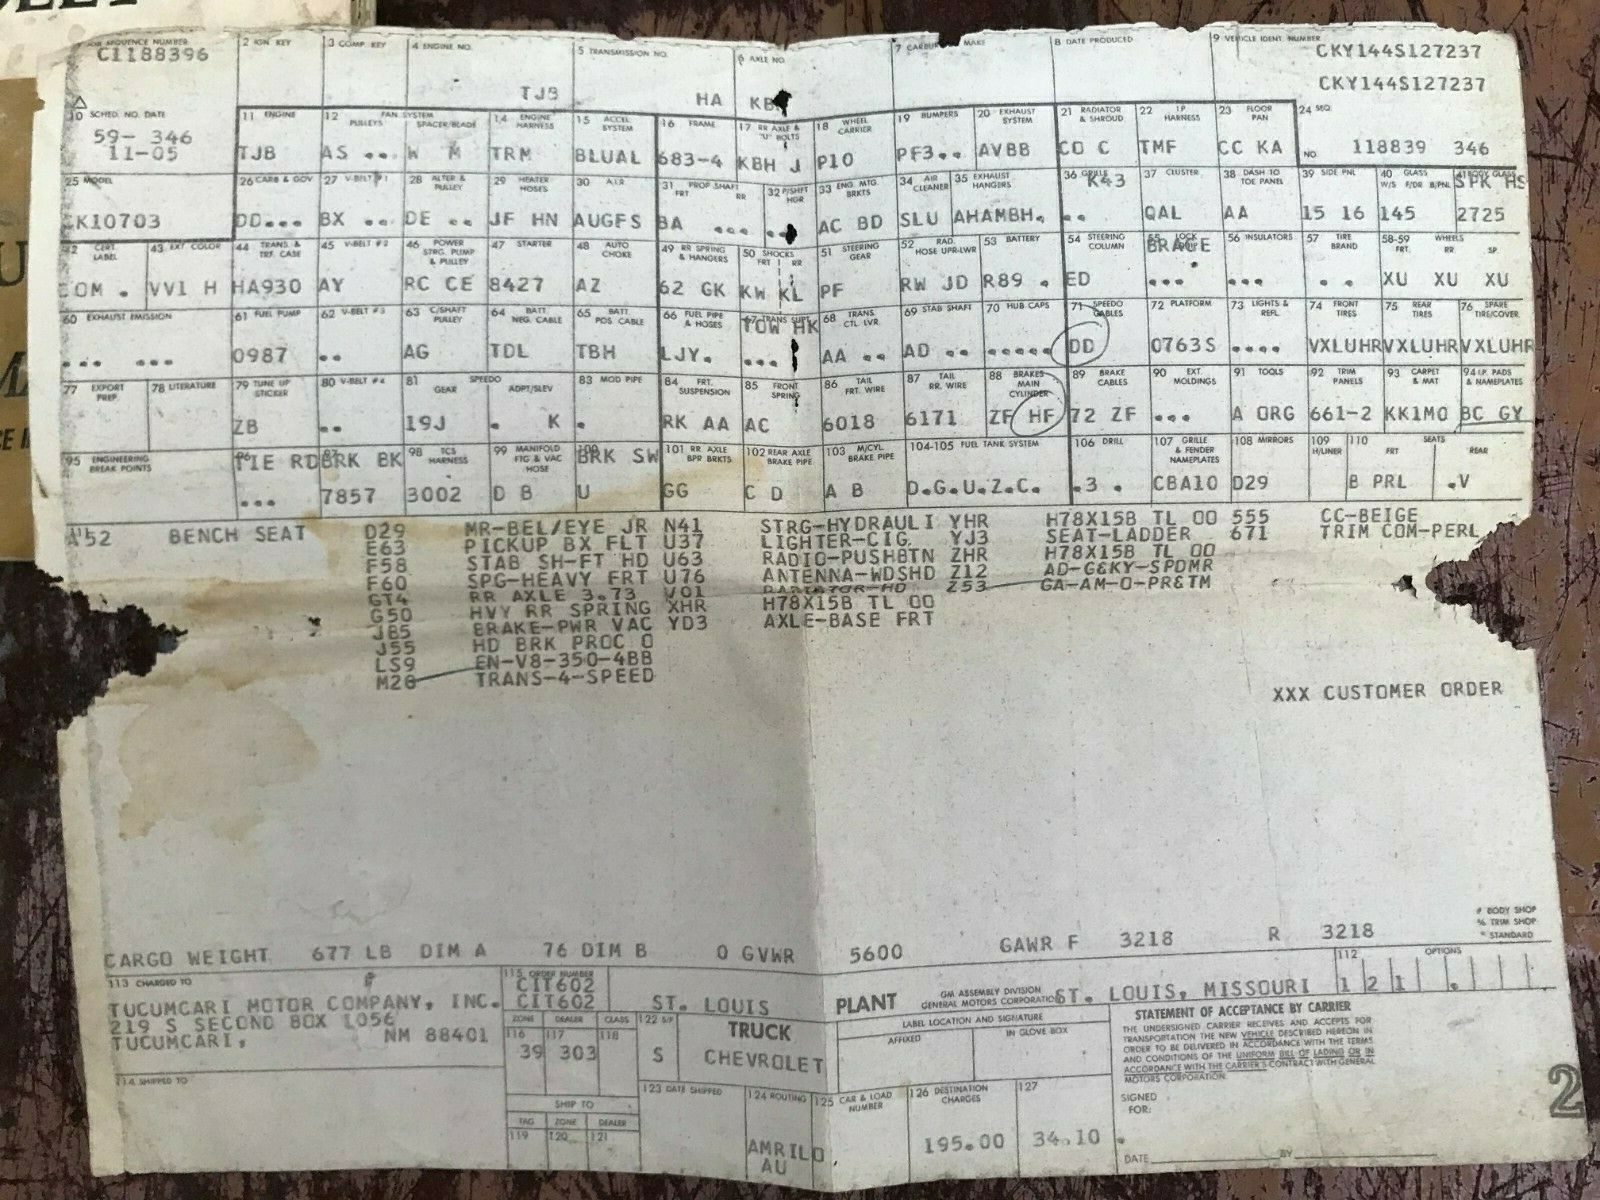 JOB SEQUENCE NUMBER 2 IGN KEY 3 COMP KEY 4 ENGINE NO. 5 TRANSMISSION NO. 6 AXLE NO. 7 MAKE 8 DATE PRODUCED 9 VEHICLE IDENT. NUMBER
C1188396 CKY144S127237
TJB HA CKY144S127237
10 SCHED. NO. DATE 11 ENGINE 12 FAN SYSTEM PULLEYS SPACER/BLADE 14 ENGINE HARNESS 15 ACCEL SYSTEM 16 FRAME 17 RR AXLE & "U" BOLTS 18 WHEEL CARRIER 19 BUMPERS 20 EXHAUST SYSTEM 21 RADIATOR & SHROUD 22 I.P. HARNESS 23 FLOOR PAN 24 SEQ. NO.
59- 346
11-05 TJB AS .. W M TRM BLUAL 683-4 KBH J P10 PF3.. AVBB CO C TMF CC KA 118839 346
25 MODEL 26 CARB & GOV 27 V-BELT #1 28 ALTER & PULLEY 29 HEATER HOSES 30 A.I.R. 31 PROP SHAFT FRT RR 32 P/SHFT HGR 33 ENG. MTG. BRKTS 34 AIR CLEANER 35 EXHAUST HANGERS 36 GRILLE 37 CLUSTER 38 DASH TO TOE PANEL 39 SIDE PNL 40 GLASS W/S F/DR B/PNL
K43 SPK HS
CK10703 DD... BX .. DE .. JF HN AUGFS BA ... ... AC BD SLU AHAMBH. .. QAL AA 15 16 145 2725
42 CERT. LABEL 43 EXT. COLOR 44 TRANS. & TRF. CASE 45 V-BELT #2 46 POWER STRG. PUMP & PULLEY 47 STARTER 48 AUTO CHOKE 49 RR SPRING & HANGERS 50 SHOCKS FRT RR 51 STEERING GEAR 52 RAD. HOSE UPR-LWR 53 BATTERY 54 STEERING COLUMN 55 LOCK 56 INSULATORS 57 TIRE BRAND 58-59 WHEELS FRT. RR SP.
BRACE
COM . VV1 H HA930 AY RC CE 8427 AZ 62 GK KW KL PF RW JD R89 . ED ... ... . . XU XU XU
60 EXHAUST EMISSION 61 FUEL PUMP 62 V-BELT #3 63 C/SHAFT PULLEY 64 BATT. NEG. CABLE 65 BATT. POS. CABLE 66 FUEL PIPE & HOSES 67 TRANS SUPT. 68 TRANS. CTL LVR. 69 STAB SHAFT 70 HUB CAPS 71 SPEEDO CABLES 72 PLATFORM 73 LIGHTS & REFL. 74 FRONT TIRES 75 REAR TIRES 76 SPARE TIRE/COVER
TOW HK
... ... 0987 .. AG TDL TBH LJY. ... AA .. AD .. ..... DD 0763S .... VXLUHR VXLUHR VXLUHR
77 EXPORT PREP. 78 LITERATURE 79 TUNE UP STICKER 80 V-BELT #4 81 SPEEDO GEAR ADPT/SLEV 83 MOD PIPE 84 FRT. SUSPENSION 85 FRONT SPRING 86 TAIL FRT. WIRE 87 TAIL RR. WIRE 88 BRAKES MAIN CYLINDER 89 BRAKE CABLES 90 EXT. MOLDINGS 91 TOOLS 92 TRIM PANELS 93 CARPET & MAT 94 I.P. PADS & NAMEPLATES
ZB .. 19J . K . RK AA AC 6018 6171 ZF HF 72 ZF ... A ORG 661-2 KK1MO BC GY
95 ENGINEERING BREAK POINTS 98 TCS HARNESS 99 MANIFOLD FTG & VAC HOSE 101 RR AXLE BPR BRKTS 102 REAR AXLE BRAKE PIPE 103 M/CYL BRAKE PIPE 104-105 FUEL TANK SYSTEM 106 DRILL 107 GRILLE & FENDER NAMEPLATES 108 MIRRORS 109 H/LINER 110 SEATS FRT REAR
TIE RD BRK BK BRK SW
... 7857 3002 D B U GG C D A B D.G.U.Z.C. .3 . CBA10 D29 B PRL .V
A52 BENCH SEAT D29 MR-BEL/EYE JR N41 STRG-HYDRAULI YHR H78X15B TL OO 555 CC-BEIGE
E63 PICKUP BX FLT U37 LIGHTER-CIG. YJ3 SEAT-LADDER 671 TRIM COM-PERL
F58 STAB SH-FT HD U63 RADIO-PUSHBTN ZHR H78X15B TL OO
F60 SPG-HEAVY FRT U76 ANTENNA-WDSHD Z12 AD-G&KY-SPDMR
GT4 RR AXLE 3.73 V01 RADIATOR-HD Z53 GA-AM-O-PR&TM
G50 HVY RR SPRING XHR H78X15B TL OO
J85 BRAKE-PWR VAC YD3 AXLE-BASE FRT
J55 HD BRK PROC O
LS9 EN-V8-350-4BB
M20 TRANS-4-SPEED
XXX CUSTOMER ORDER
# BODY SHOP
% TRIM SHOP
* STANDARD
CARGO WEIGHT 677 LB DIM A 76 DIM B 0 GVWR 5600 GAWR F 3218 R 3218
113 CHARGED TO 115 ORDER NUMBER 112 OPTIONS
CIT602
TUCUMCARI MOTOR COMPANY, INC. CIT602 ST. LOUIS PLANT GM ASSEMBLY DIVISION GENERAL MOTORS CORPORATION ST. LOUIS, MISSOURI 1 2 1 .
219 S SECOND BOX 1056
TUCUMCARI, NM 88401
ZONE DEALER CLASS 122 S/F TRUCK LABEL LOCATION AND SIGNATURE
116 117 118 AFFIXED IN GLOVE BOX
39 303 S CHEVROLET
STATEMENT OF ACCEPTANCE BY CARRIER
THE UNDERSIGNED CARRIER RECEIVES AND ACCEPTS FOR
TRANSPORTATION THE NEW VEHICLE DESCRIBED HEREON IN
ORDER TO BE DELIVERED IN ACCORDANCE WITH THE TERMS
AND CONDITIONS OF THE UNIFORM BILL OF LADING OR IN
ACCORDANCE WITH THE CARRIER'S CONTRACT WITH GENERAL
MOTORS CORPORATION.
114 SHIPPED TO 123 DATE SHIPPED 124 ROUTING 125 CAR & LOAD NUMBER 126 DESTINATION CHARGES 127
SHIP TO
TAG ZONE DEALER
119 120 121
AMRILO
AU
195.00 34.10
SIGNED
FOR:
DATE BY
2